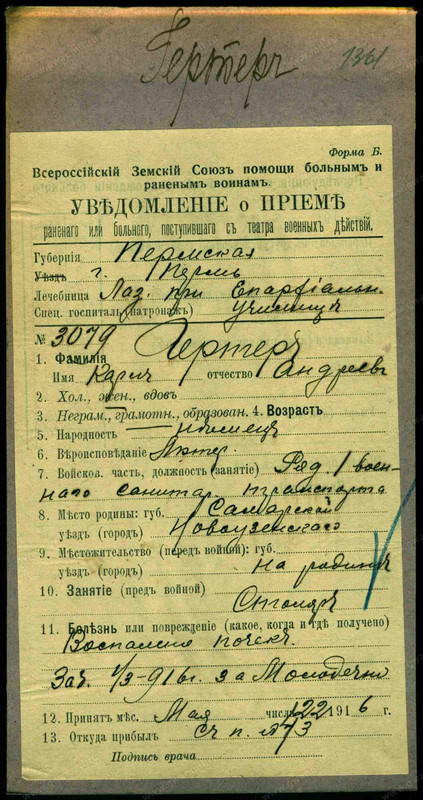 Гертеръ 1361
Форма Б.
Всероссійскій Земскій Союзъ помощи больнымъ и
раненымъ воинамъ.
УВѢДОМЛЕНІЕ о ПРІЕМѢ
раненаго или больного, поступившаго съ театра военныхъ дѣйствій.
Губернія Пермская
Уѣздъ г. Пермь
Лечебница Лаз. при Епархіальн.
Спец. госпиталь (патронажъ) Училищѣ
№ 3079
1. Фамилія Гертеръ
Имя Карлъ отчество Андреевъ
2. Хол., жен., вдов.
3. Неграм., грамотн., образован. 4. Возрастъ
5. Народность нѣмецъ
6. Вѣроисповѣданіе Лютер.
7. Войсков. часть, должность (занятіе) Ряд. 1 воен-
наго санитар. транспорта
8. Мѣсто родины: губ. Самарской
уѣздъ (городъ) Новоузенскаго
9. Мѣстожительство (передъ войной): губ.
уѣздъ (городъ) На родинѣ
10. Занятіе (предъ войной)
Столяръ
11. Болѣзнь или поврежденіе (какое, когда и гдѣ получено)
Воспаленіе почекъ.
Заб. 1/3-916г. за Молодечно
12. Принятъ мѣс. Мая число 22 1916 г.
13. Откуда прибылъ Съ п. № 73
Подпись врача